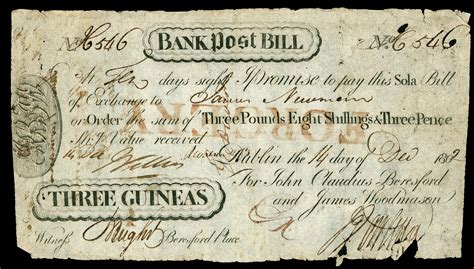 No. 6546 BANK POST BILL No. 6546
At Ten days sight I Promise to pay this Sola Bill
of Exchange to James Newman
or Order the sum of Three Pounds Eight Shillings & Three Pence
Value received Dublin the 14 day of Dec 1802
For John Claudius Beresford
THREE GUINEAS and James Woodmason
Witness Wright Beresford Place
FORGERY